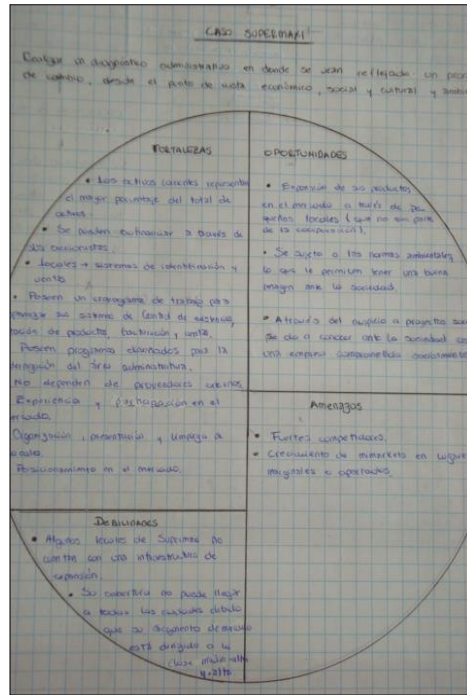 CASO SUPERMAXI
Realizar un diagnóstico administrativo en donde se vean reflejado un
de cambio, desde el punto de vista económico, social y cultural y
FORTALEZAS
• Los activos corrientes representan
el mayor porcentaje del total de
activos.
• Se pueden financiar a través de
sus accionistas.
• Locales → sistemas de identificación y
ventas
• Poseen un cronograma de trabajo para
su sistema de control de
de productos, facturación,
Poseen programas diseñados para la
del área administrativa.
No dependen de proveedores
Experiencia y participación en el
Organización, presentación y limpieza de
Posicionamiento en el mercado.
OPORTUNIDADES
• Expansión de sus productos
en el mercado a través de
locales (que no son parte
de la corporación).
• Se sujeta a las normas ambientales
lo que le permiten tener una buena
imagen ante la sociedad.
• A través del auspicio a proyectos
se da a conocer ante la sociedad
una empresa comprometida
AMENAZAS
• Fuertes competidores.
• Crecimiento de minimarkets en
marginales o apartados.
DEBILIDADES
• Algunos locales de Supermaxi no
cuentan con una infraestructura de
expansión.
• Su cobertura no puede llegar
a todas las ciudades debido
que su segmento de mercado
está dirigido a la
clase media alta
y alta